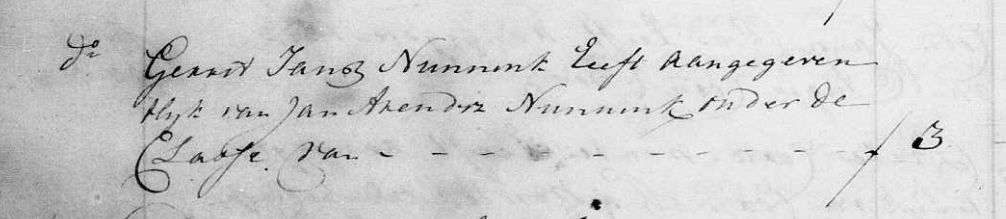 do Gerrit Jansz Nunnink Eeft Aangegeven
t Lyk van Jan Arendsz Nunnink onder de
Classe van - - - - - - - - - ƒ 3